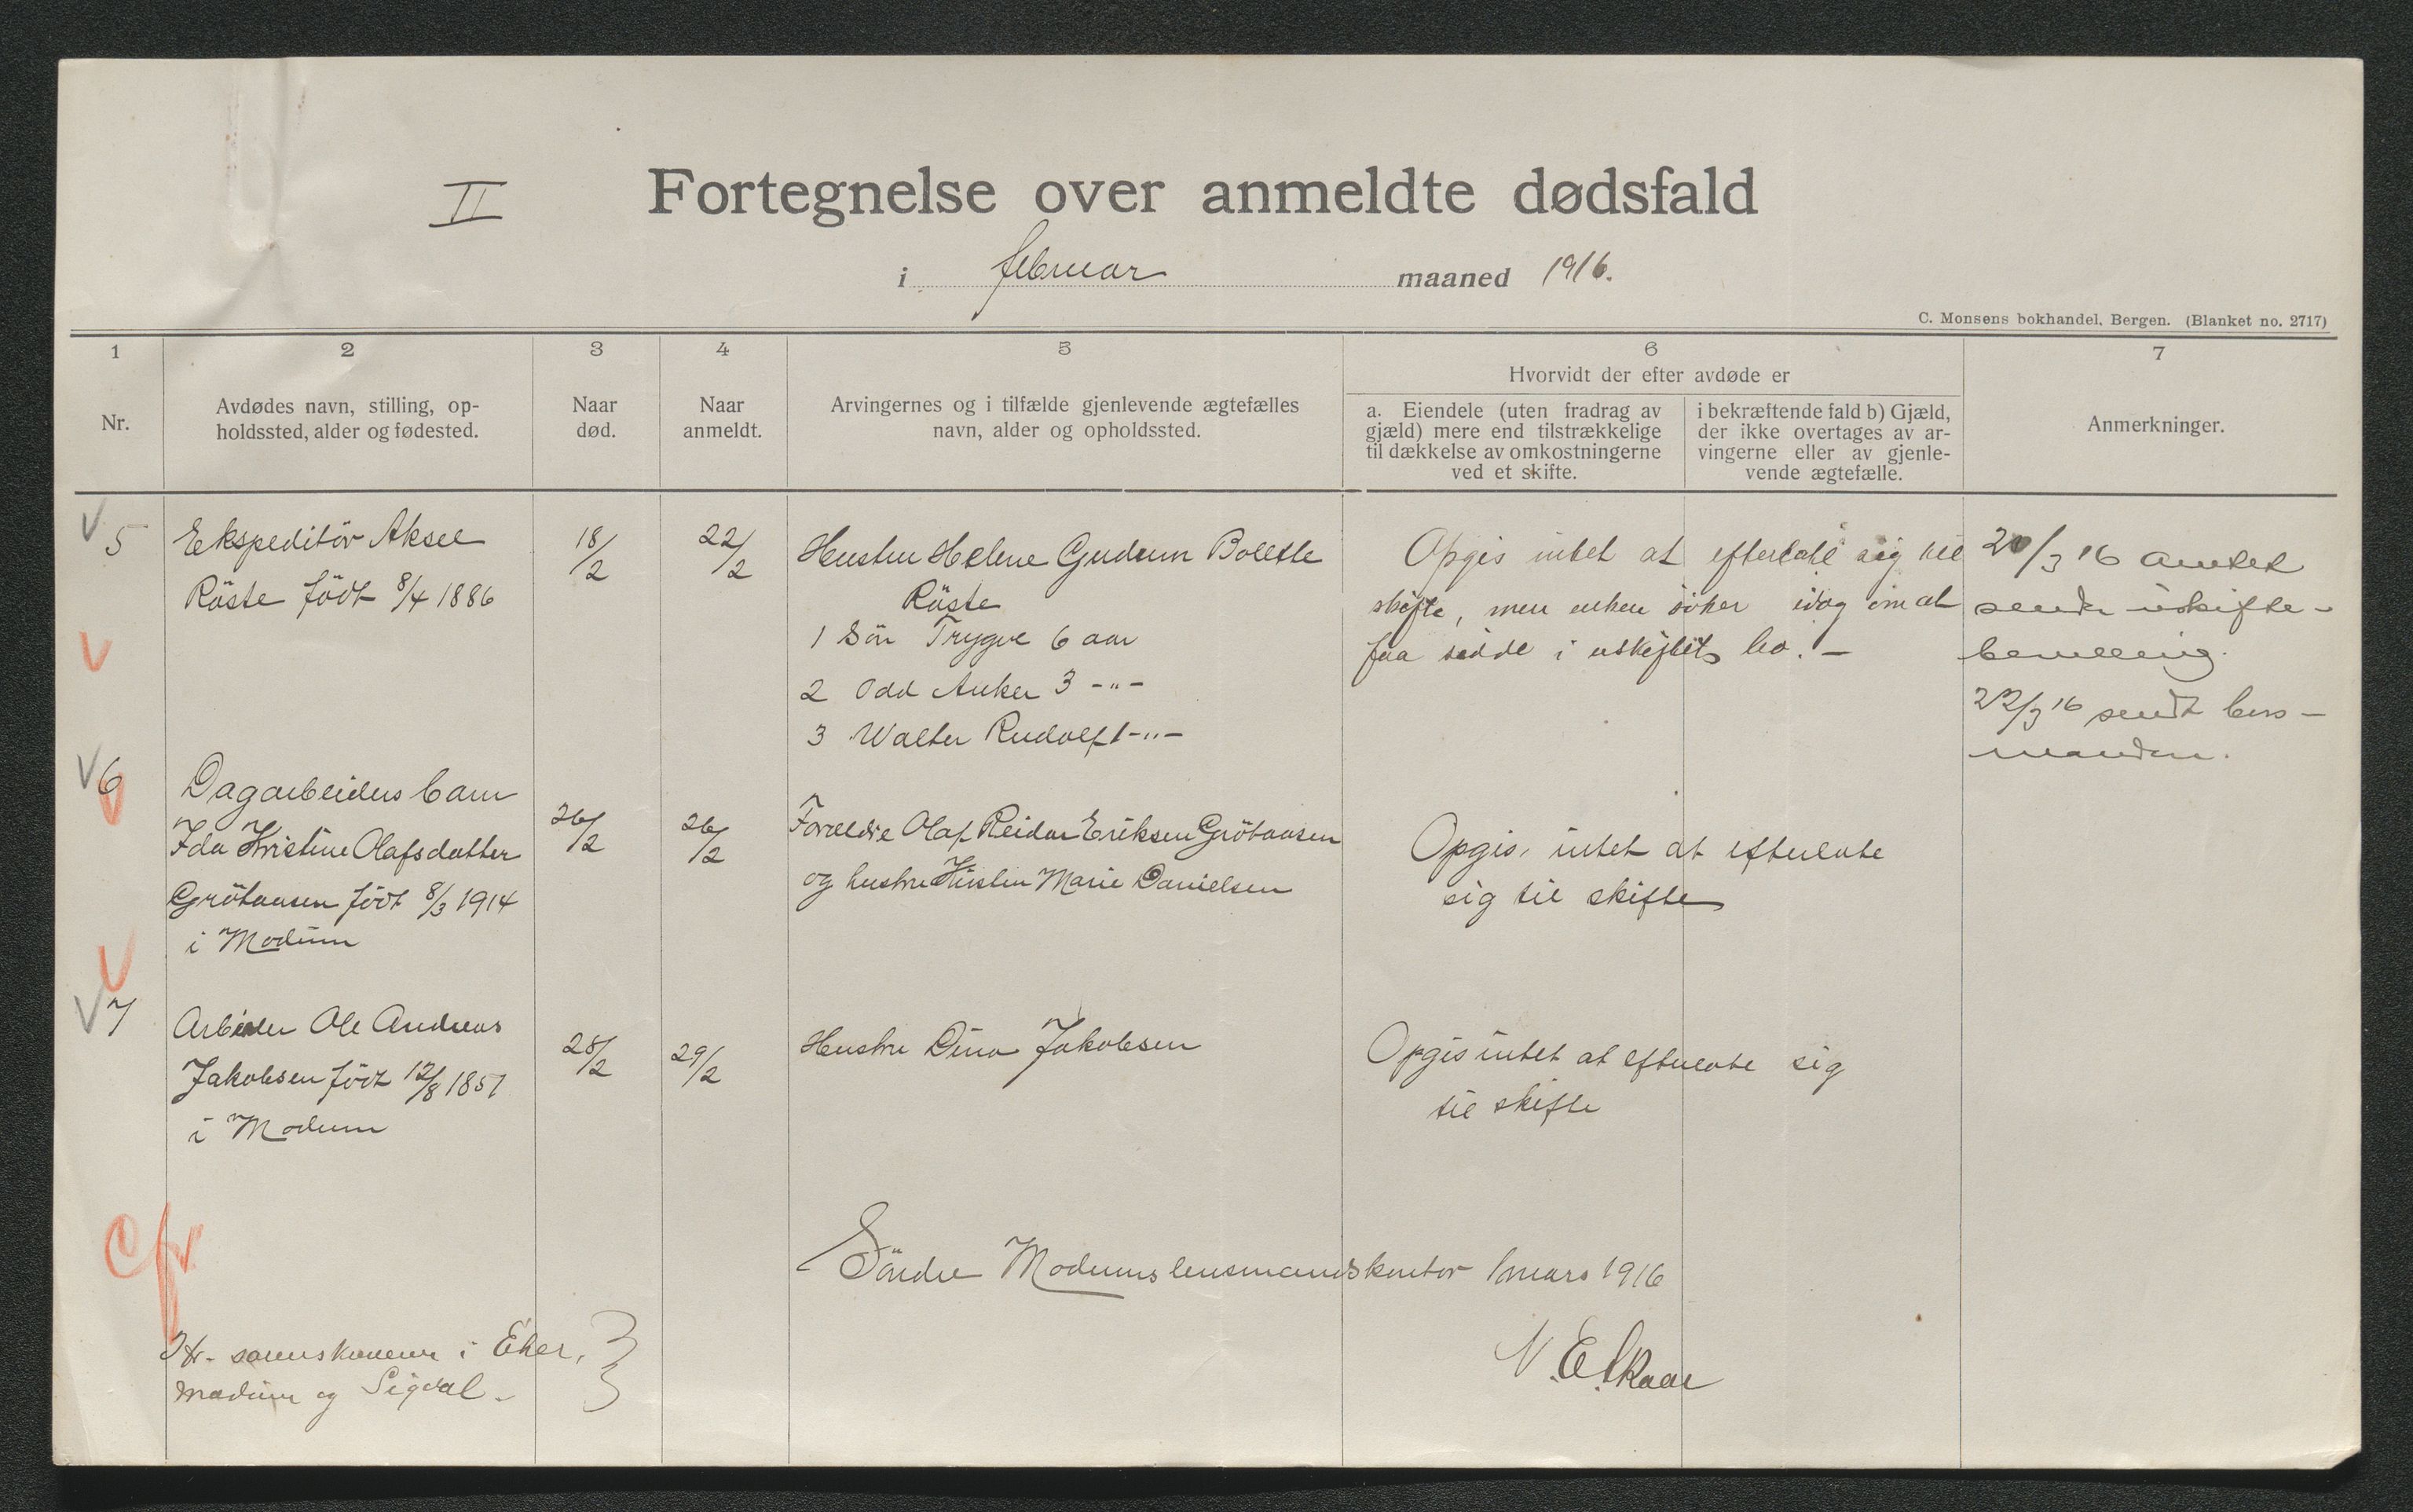 II
Fortegnelse over anmeldte dødsfald
i februar maaned 1916.
C. Monsens bokhandel, Bergen. (Blanket no. 2717)
1 2 3 4 5 6 7
Nr.
Avdødes navn, stilling, op-
holdssted, alder og fødested.
Naar
død.
Naar
anmeldt.
Arvingernes og i tilfælde gjenlevende ægtefælles
navn, alder og opholdssted.
Hvorvidt der efter avdøde er
a. Eiendele (uten fradrag av
gjæld) mere end tilstrækkelige
til dækkelse av omkostningerne
ved et skifte.
i bekræftende fald b) Gjæld,
der ikke overtages av ar-
vingerne eller av gjenle-
vende ægtefælle.
Anmerkninger.
5
Ekspeditör Aksel
Röste födt 8/4 1886
18/2
22/2
Hustru Helene Gudrun Bolette
Röste
1 Sön Trygve 6 aar
2 Odd Anker 3 -"-
3 Walter Rudolf 1 -"-
Opgis intet at efterlate sig til
skifte, men enken söker idag om at
faa sidde i uskiftet bo. -
20/3 16 amtet
sender uskifte-
bevilling.
22/3 16 sendt lens-
manden.
6
Dagarbeiders barn
Ida Kristine Olafsdatter
Grötaasen födt 8/3 1914
i Modum
26/2
26/2
Forældre Olaf Reidar Eriksen Grötaasen
og hustru Kirstin Marie Danielsen
Opgis intet at efterlate
sig til skifte
7
Arbeider Ole Andreas
Jakobsen födt 12/8 1851
i Modum
28/2
29/2
Hustru Dina Jakobsen
Opgis intet at efterlate sig
til skifte
Cfr
Söndre Modums lensmandskontor 1 mars 1916
N. E. Skaar
Hr. sorenskriveren i Eker,
Modum og Sigdal.